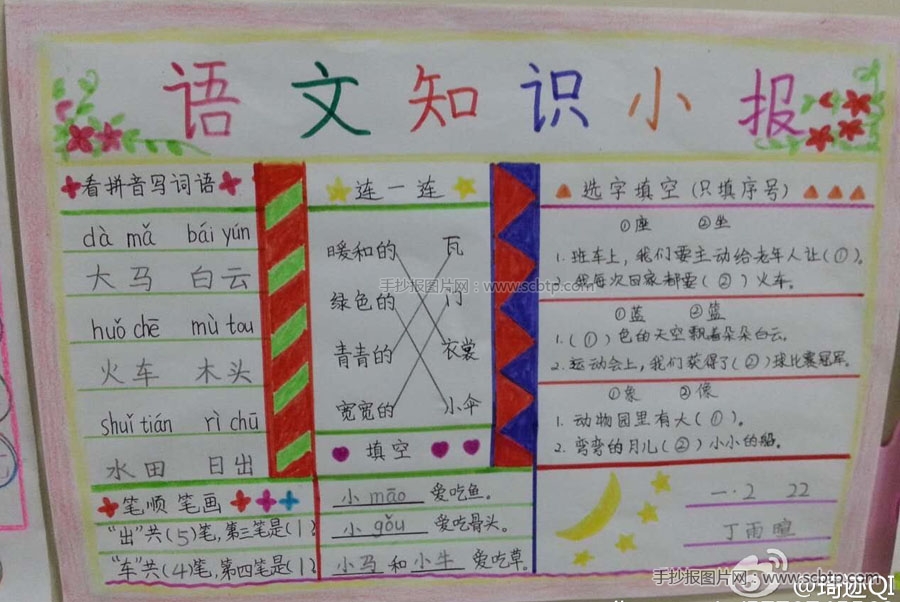 语文知识小报
看拼音写词语
dà mǎ bái yún
大马 白云
huǒ chē mù tou
火车 木头
shuǐ tián rì chū
水田 日出
笔顺 笔画
“出”共(5)笔,第三笔是(1)
“车”共(4)笔,第四笔是(1)
连一连
暖和的 瓦
绿色的 门
青青的 衣裳
宽宽的 小伞
填空
小māo 爱吃鱼。
小gǒu 爱吃骨头。
小马 和 小牛 爱吃草。
选字填空(只填序号)
①座 ②坐
1. 班车上,我们要主动给老年人让(①)。
2. 我每次回家都要(②)火车。
①蓝 ②篮
1.(①)色的天空飘着朵朵白云。
2. 运动会上,我们获得了(②)球比赛冠军。
①象 ②像
1. 动物园里有大(①)。
2. 弯弯的月儿(②)小小的船。
一·2 22
丁雨暄
手抄报图片网:www.scbtp.com
手抄报图片网:www.scbtp.com
@琦迹QI